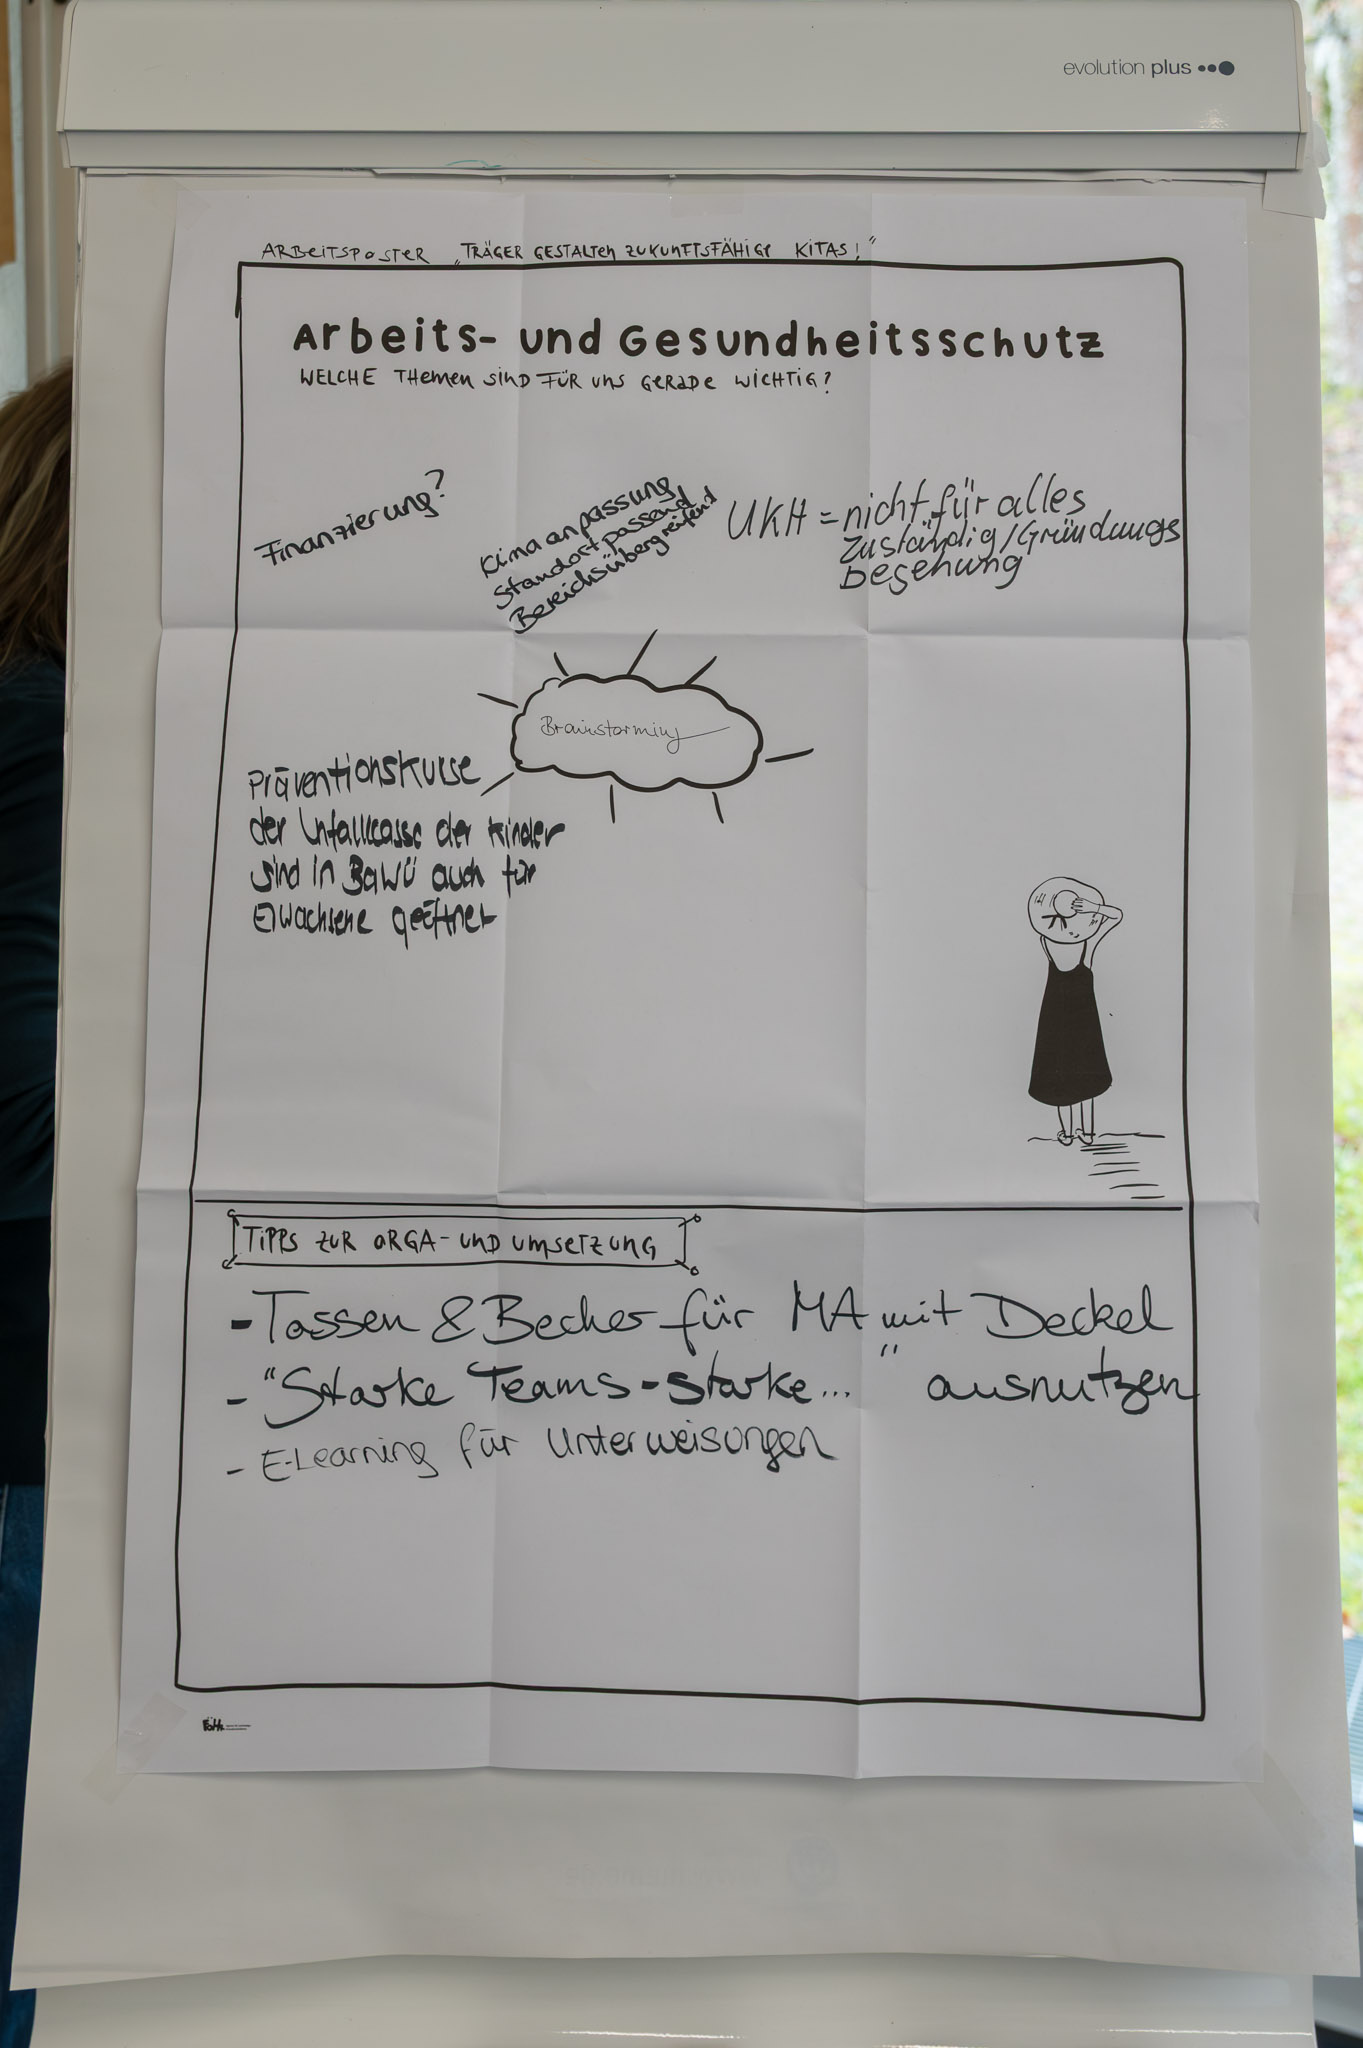 evolution plus
ARBEITSPOSTER „TRÄGER GESTALTEN ZUKUNFTSFÄHIGE KITAS!“
Arbeits- und Gesundheitsschutz
WELCHE THEMEN SIND FÜR UNS GERADE WICHTIG?
Finanzierung?
Klimaanpassung
standortpassend
Bereichsübergreifend
UKH = nicht für alles
zuständig/Gründungs
begehung
Brainstorming
Präventionskurse
der Unfallkasse der Kinder
sind in BaWü auch für
Erwachsene geöffnet
TIPPS ZUR ORGA- UND UMSETZUNG
- Tassen & Becher für MA mit Deckel
- "Starke Teams - starke..." ausnutzen
- E-Learning für Unterweisungen